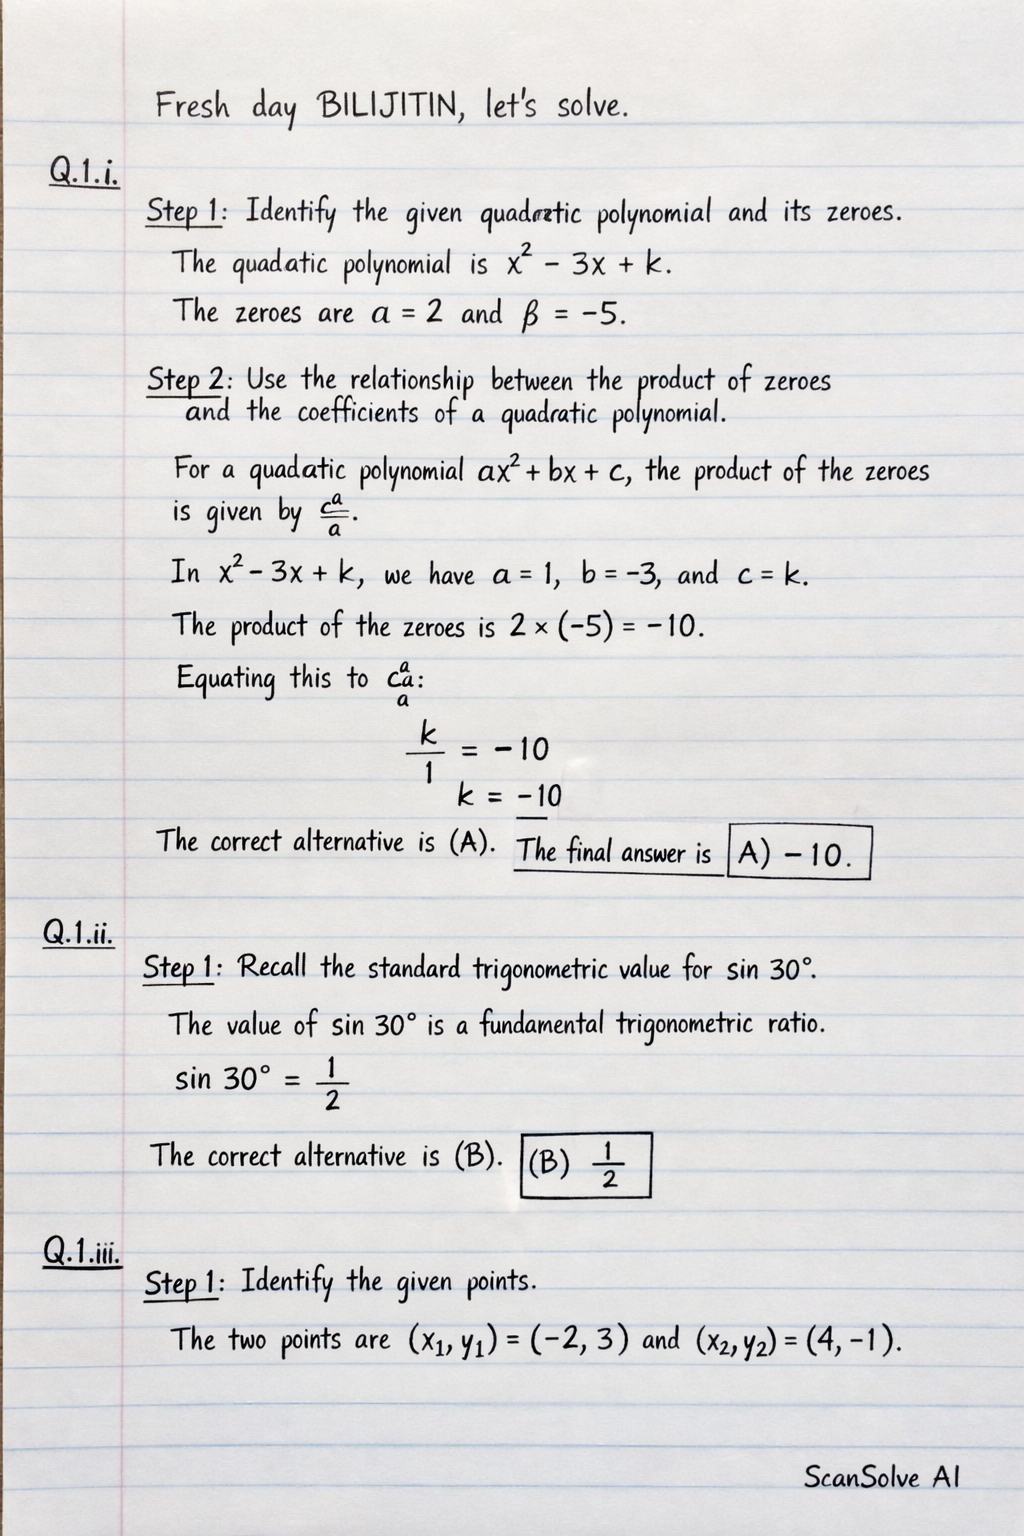 Fresh day BILIJITIN, let's solve.
Q.1.i.
Step 1: Identify the given quadratic polynomial and its zeroes.
The quadatic polynomial is x² − 3x + k.
The zeroes are a = 2 and β = −5.
Step 2: Use the relationship between the product of zeroes
and the coefficients of a quadratic polynomial.
For a quadatic polynomial ax² + bx + c, the product of the zeroes
is given by cᵃ/a.
In x² − 3x + k, we have a = 1, b = −3, and c = k.
The product of the zeroes is 2 × (−5) = −10.
Equating this to
k/1 = −10
k = −10
The correct alternative is (A). The final answer is A) −10.
Q.1.ii.
Step 1: Recall the standard trigonometric value for sin 30°.
The value of sin 30° is a fundamental trigonometric ratio.
sin 30° = 1/2
The correct alternative is (B). (B) 1/2
Q.1.iii.
Step 1: Identify the given points.
The two points are (x₁, y₁) = (−2, 3) and (x₂, y₂) = (4, −1).
ScanSolve AI